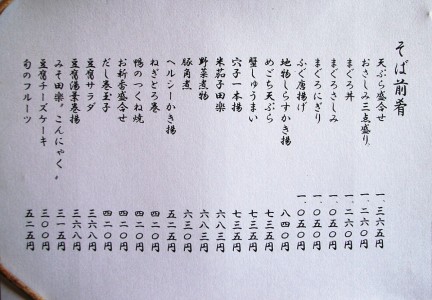 そば前肴
天ぷら盛合せ 一.三六五円
おさしみ三点盛り 一.二六〇円
まぐろ丼 一.二六〇円
まぐろさしみ 一.〇五〇円
まぐろにぎり 一.〇五〇円
ふぐ唐揚げ 一.〇五〇円
地物しらすかき揚 八四〇円
めごち天ぷら 七三五円
蟹しゅうまい 七三五円
穴子一本揚 七三五円
米茄子田楽 六八三円
野菜煮物 六八三円
豚角煮 六三〇円
ヘルシーかき揚 五二五円
ねぎとろ巻 四二〇円
鴨のつくね焼 四二〇円
お新香盛合せ 四二〇円
だし巻玉子 四二〇円
豆腐サラダ 三六八円
豆腐湯葉巻揚 三六八円
みそ田楽〝こんにゃく〟 三一五円
豆腐チーズケーキ 三〇〇円
旬のフルーツ 五二五円